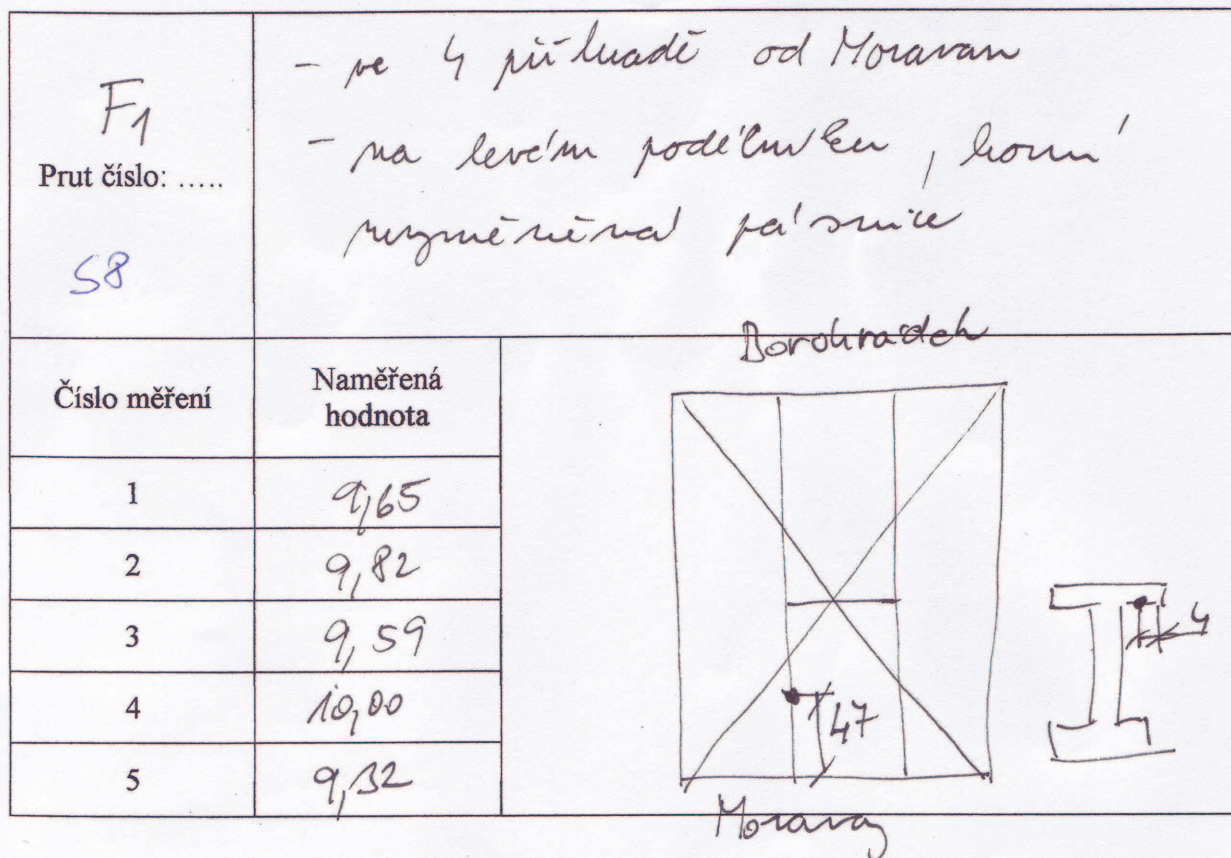 F1
Prut číslo: .....
58
- ve 4 příhradě od Moravan
- na levém podélníku, horní
nevyměněná pásnice
Číslo měření
Naměřená
hodnota
1
9,65
2
9,82
3
9,59
4
10,00
5
9,32
Borohrádek
47
4
Moravany